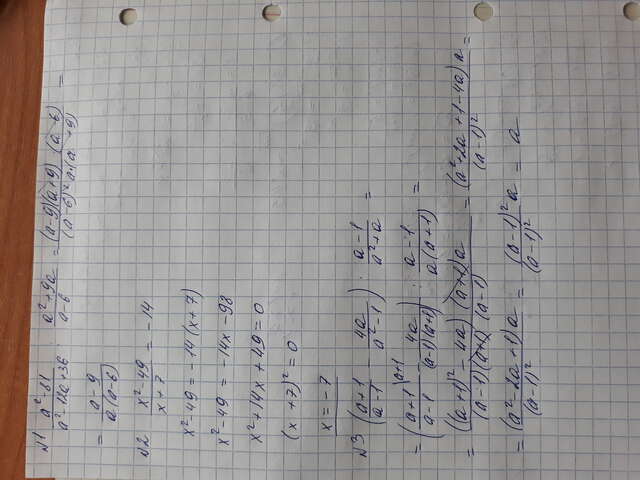 №1 (a²-81)/(a²-12a+36) : (a²+9a)/(a-6) = ((a-9)(a+9)(a-6))/((a-6)² a(a+9)) =
= (a-9)/(a(a-6))
№2 (x²-49)/(x+7) = -14
x²-49 = -14(x+7)
x²-49 = -14x-98
x²+14x+49=0
(x+7)²=0
x=-7
№3 ((a+1)/(a-1) - 4a/(a²-1)) : (a-1)/(a²+a) =
= ((a+1)/(a-1) \a+1 - 4a/((a-1)(a+1))) : (a-1)/(a(a+1)) =
= (((a+1)²-4a)(a+1)a)/((a-1)(a+1)(a-1)) = ((a²+2a+1-4a)a)/((a-1)²) =
= ((a²-2a+1)a)/((a-1)²) = ((a-1)²a)/((a-1)²) = a